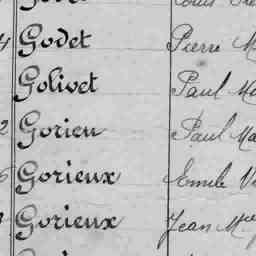 Godet Pierre M
Golivet Paul Ma
Gorieu Paul Ma
Gorieux Emile V
Gorieux Jean M